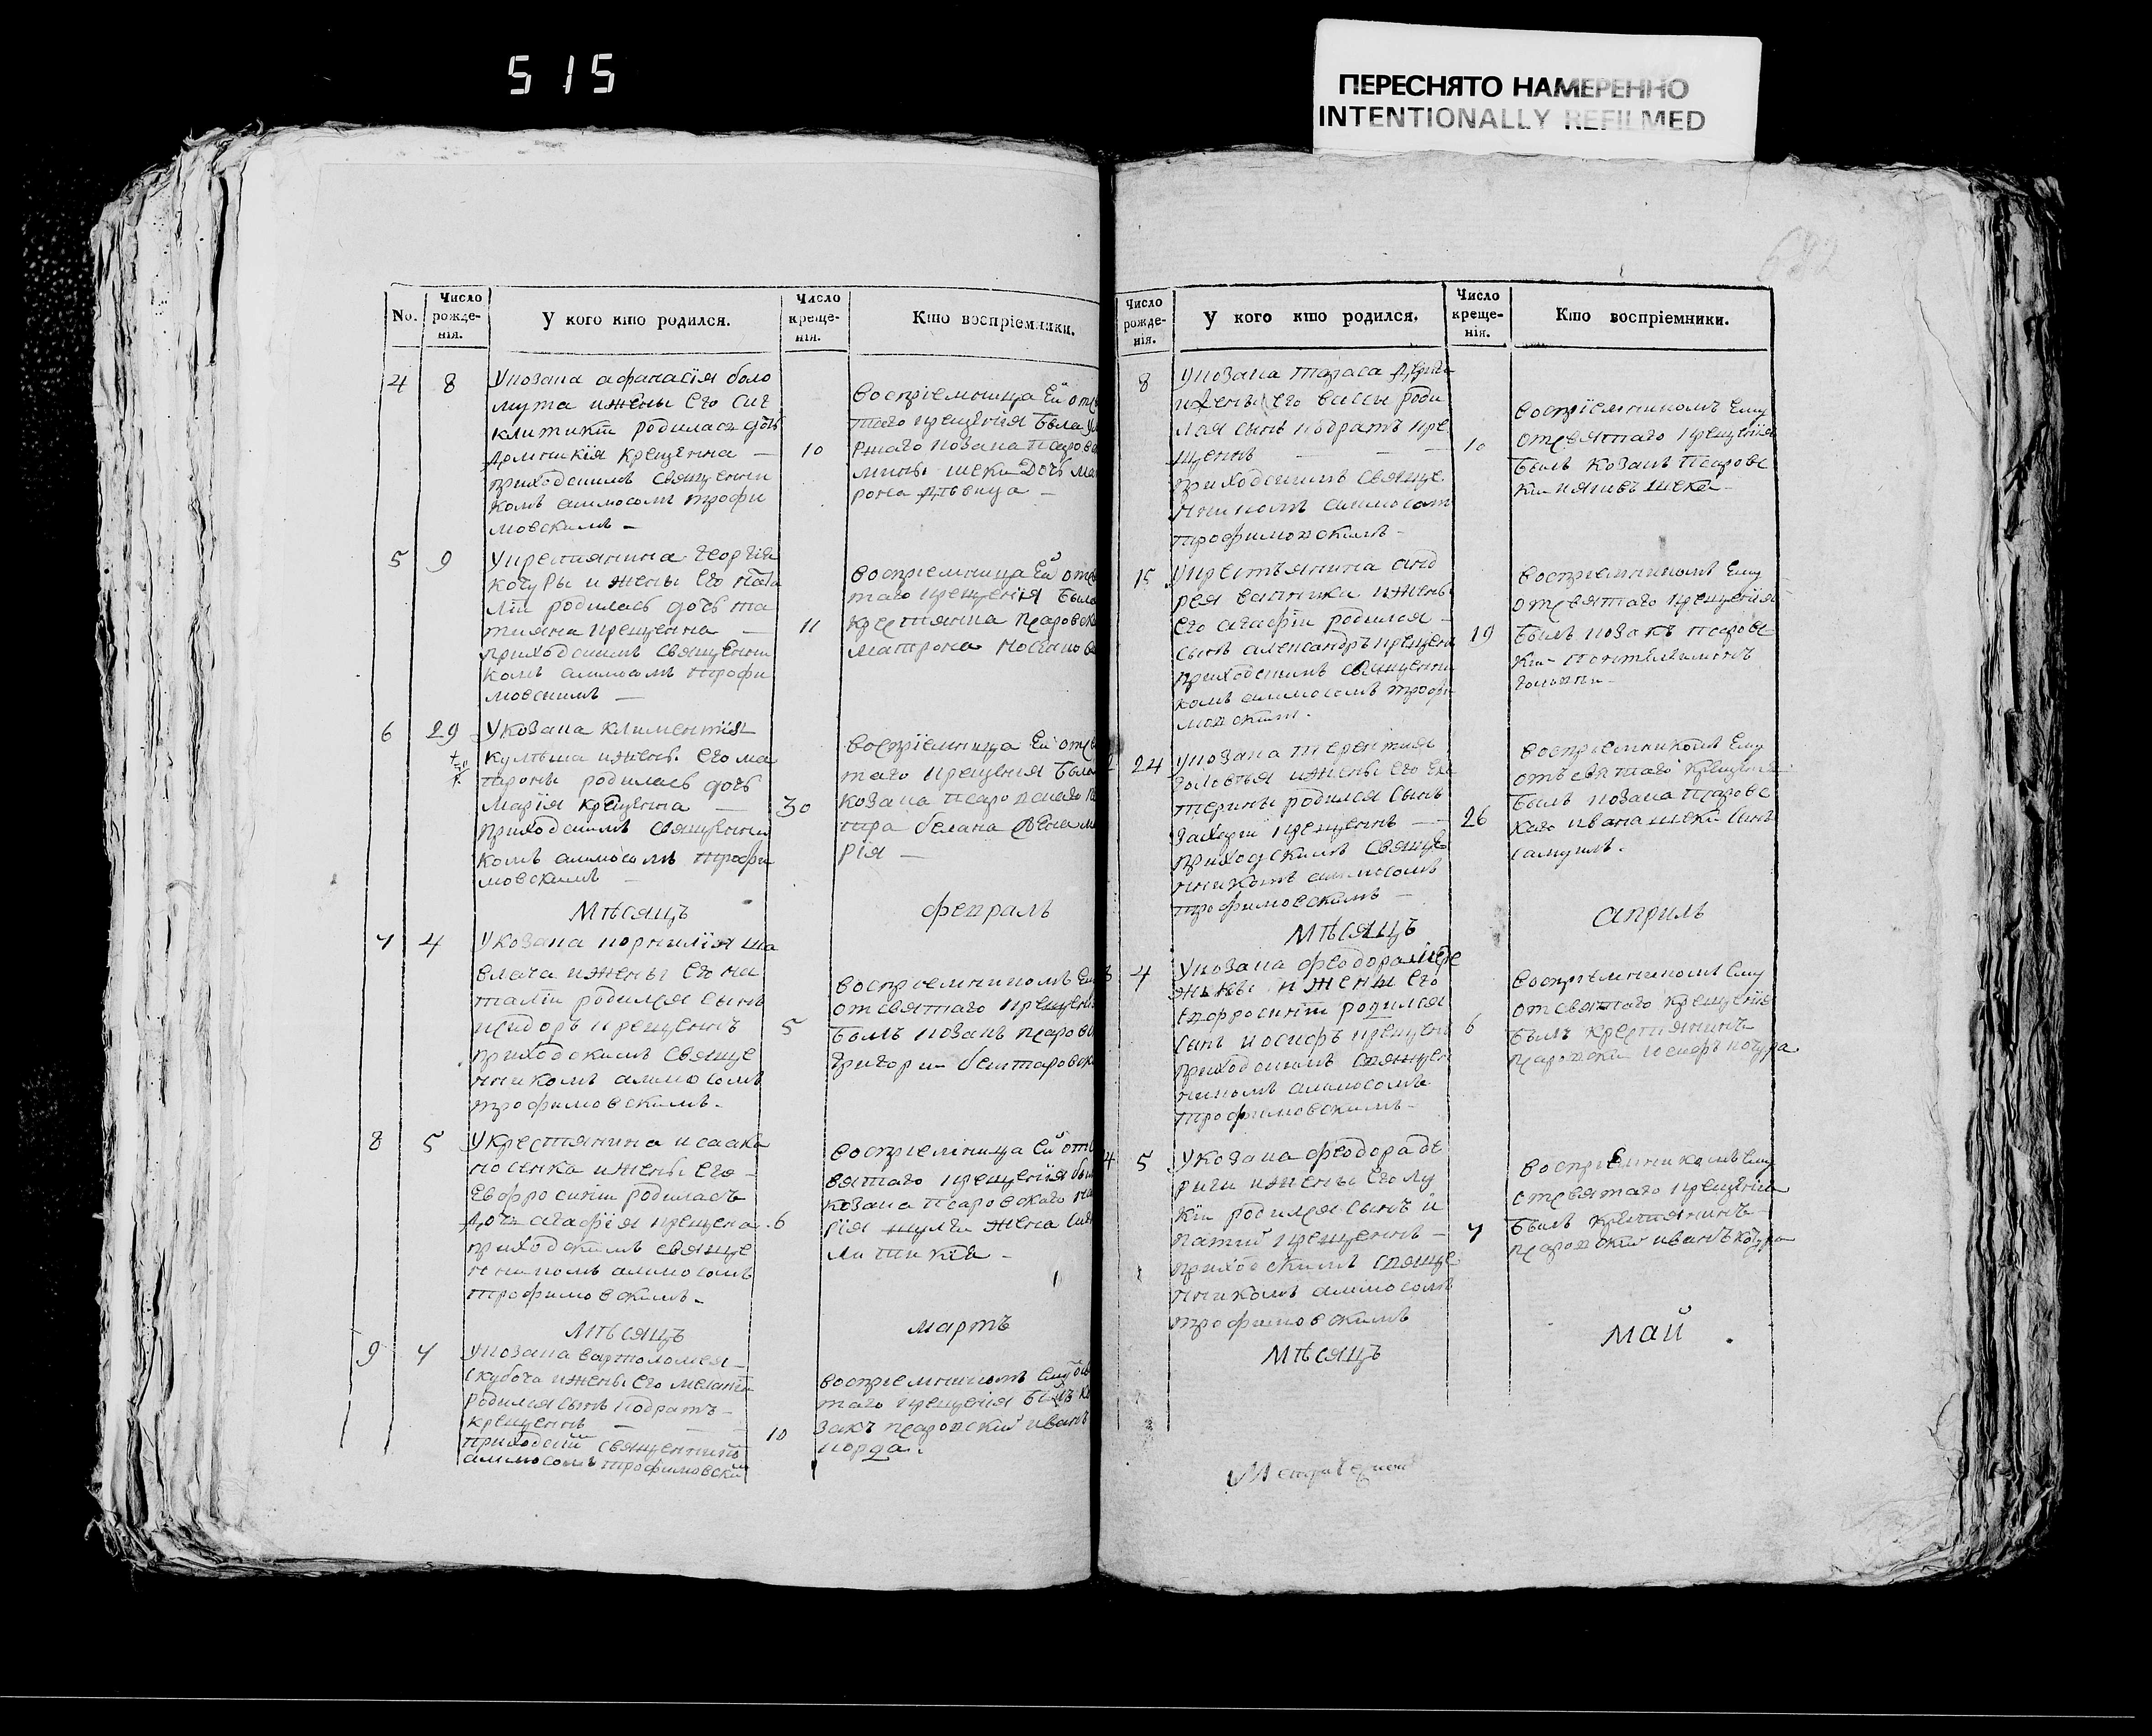 515
ПЕРЕСНЯТО НАМЕРЕННО
INTENTIONALLY REFILMED
No.
Число рожде-нія.
У кого кто родился.
Число креще-нія.
Кто воспріемники.
4 8
Укозака афанасія боло
мута ижены его син
клитикіи родилась дочь
крещенна — 10
приходскимъ священни
комъ аммосомъ трофи
мовскимъ —
воспріемница Ей отсв
таго крещенія была
козака псаров
мины шеки дочь мат
рона дѣвица —
5 9
Укрестянина георгія
коцуры и жены его ната
ліи родилась дочь та
тияна крещенна — 11
приходскимъ священни
комъ аммосомъ трофи
мовскимъ —
воспріемница Ей отсв
таго крещенія была
крестянка псаровск
матрона
6 29
Укозака климентія
ижены его ма
троны родилась дочь
марія крещенна — 30
приходскимъ священни
комъ аммосомъ трофи
мовскимъ —
воспріемница Ей отсв
таго крещенія была
козака псаровскаго
тра белана жена ма
рія —
Мѣсяцъ февраль
7 4
Укозака корнилія ша
влача ижены его на
таліи родился сынъ
исидоръ крещеннъ 5
приходскимъ священ
никомъ аммосомъ
трофимовскимъ.
воспріемникомъ Ем
отсвятаго крещені
былъ козакъ псаров
григори
8 5
Укрестянина исаака
носенка ижены его
Евфросиніи родилась
дочь агафія крещена. 6
приходскимъ священ
никомъ аммосомъ
трофимовскимъ.
воспріемница Ей отс
вятаго крещенія был
козака псаровскаго
жена син
кли тикія —
Мѣсяцъ мартъ
9 7
Укозака вартоломея
скубача ижены его меланіи
родился сынъ кодратъ
крещеннъ — 10
приходскимъ священникомъ
аммосомъ трофимовским
воспріемникомъ Ему
таго крещенія былъ ко
закъ псаровский иванъ
корда.
Число рожде-нія.
У кого кто родился.
Число креще-нія.
Кто воспріемники.
8
Укозака тараса
ижены его вассы роди
лся сынъ кодратъ кре
щеннъ — — — 10
приходскимъ священ
никомъ аммосом
трофимовскимъ —
воспріемникомъ Ему
отсвятаго крещенія
былъ козакъ псаровс
ки шека
15
Укрестьянина анд
рея ижены
его агафіи родился —
сынъ александръ крещен 19
приходскимъ священни
комъ аммосомъ трофи
мовским.
воспріемникомъ Ему
отсвятаго крещенія
былъ козакъ псаровс
ки
24
Укозака терентия
ижены его Ека
терины родился сынъ
захари крещеннъ — 26
приходскимъ священ
никомъ аммосомъ
трофимовскимъ —
воспріемникомъ Ему
отъсвятаго крещенія
былъ козака псаровс
каго ивана шеки сынъ
самуилъ.
Мѣсяцъ априль
4
Укозака феодора
и жены его
Евфросиніи родился
сынъ иосифъ крещен 6
приходскимъ священ
никомъ аммосомъ
трофимовскимъ.
воспріемникомъ Ему
отсвятаго крещенія
былъ крестянинъ
псаровски иосифъ коцура
5
Укозака феодора де
риги ижены его лу
кіи родился сынъ и
патий крещеннъ — 7
приходскимъ священ
никомъ аммосомъ
трофимовскимъ
воспріемникомъ Ему
отсвятаго крещенія
былъ крестянинъ
псаровский иванъ коцура
Мѣсяцъ май